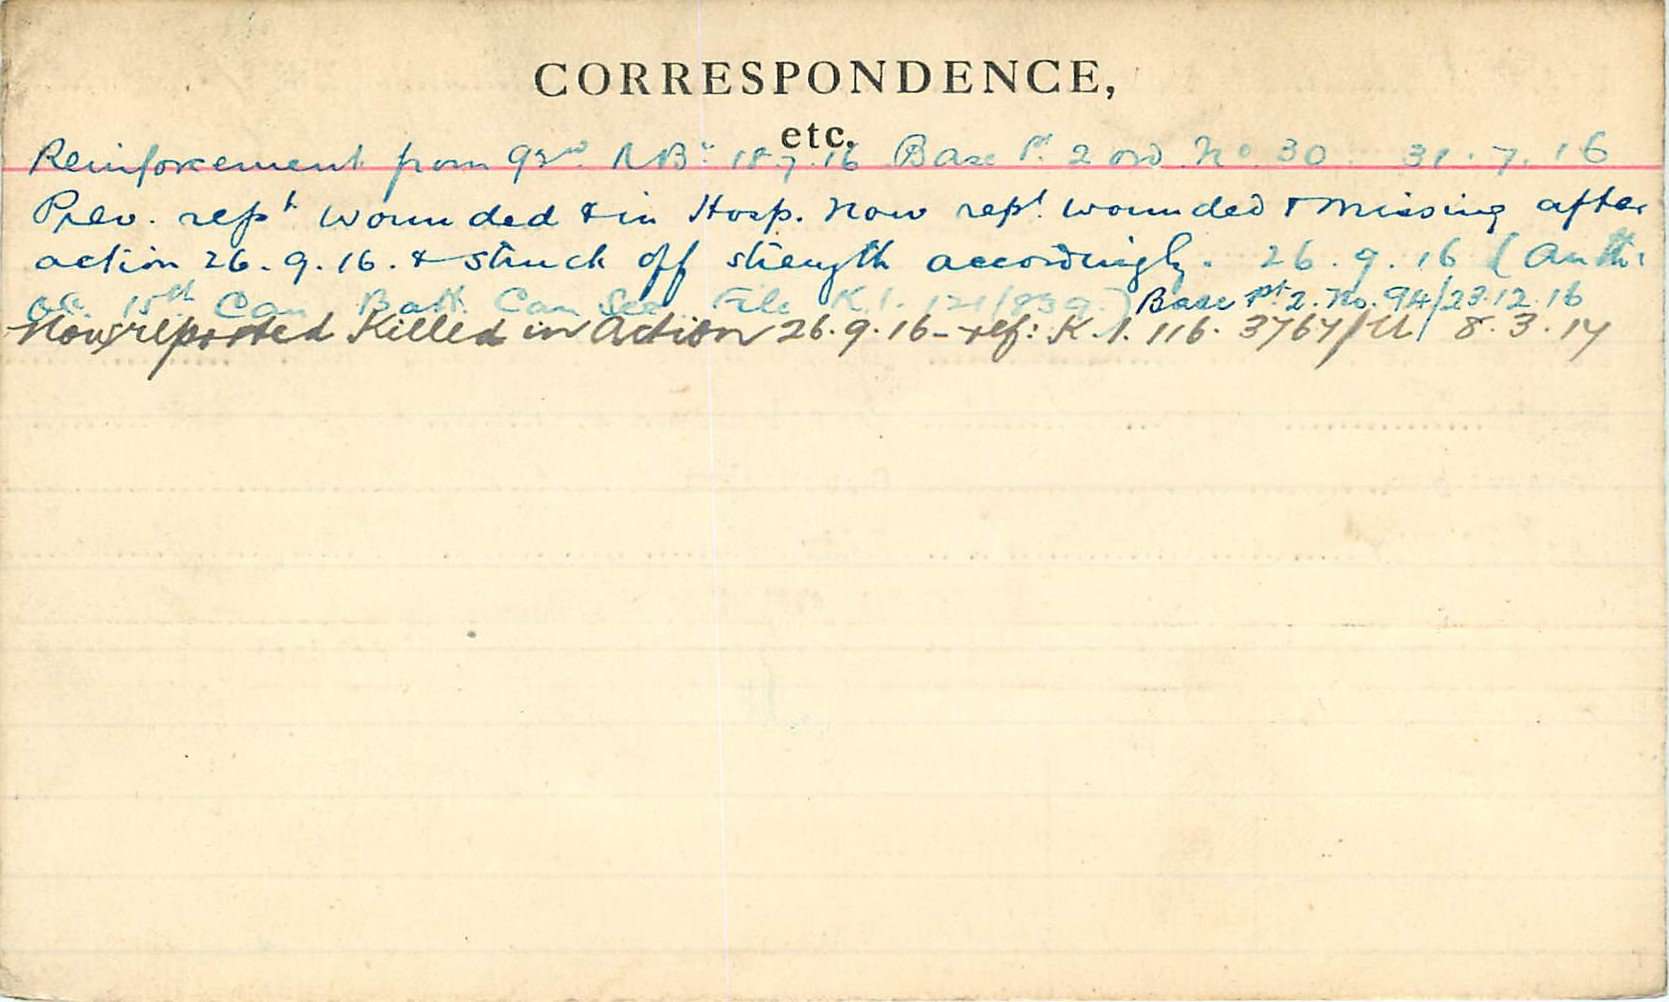 CORRESPONDENCE,
etc.
Reinforcement from 93rd RBn 18.7.16 Base Pt 2 ord. No 30. 31.7.16
Prev. rept wounded & in Hosp. Now rept. wounded & missing after
action 26.9.16. & struck off strength accordingly. 26.9.16 (Auth:
o.c. 15th Can Batt. Can Sec File K.1. 121/839.) Base Pt 2. No. 94/23.12.16
Now reported Killed in Action 26.9.16 - ref: K.1. 116. 3767/U 8.3.17